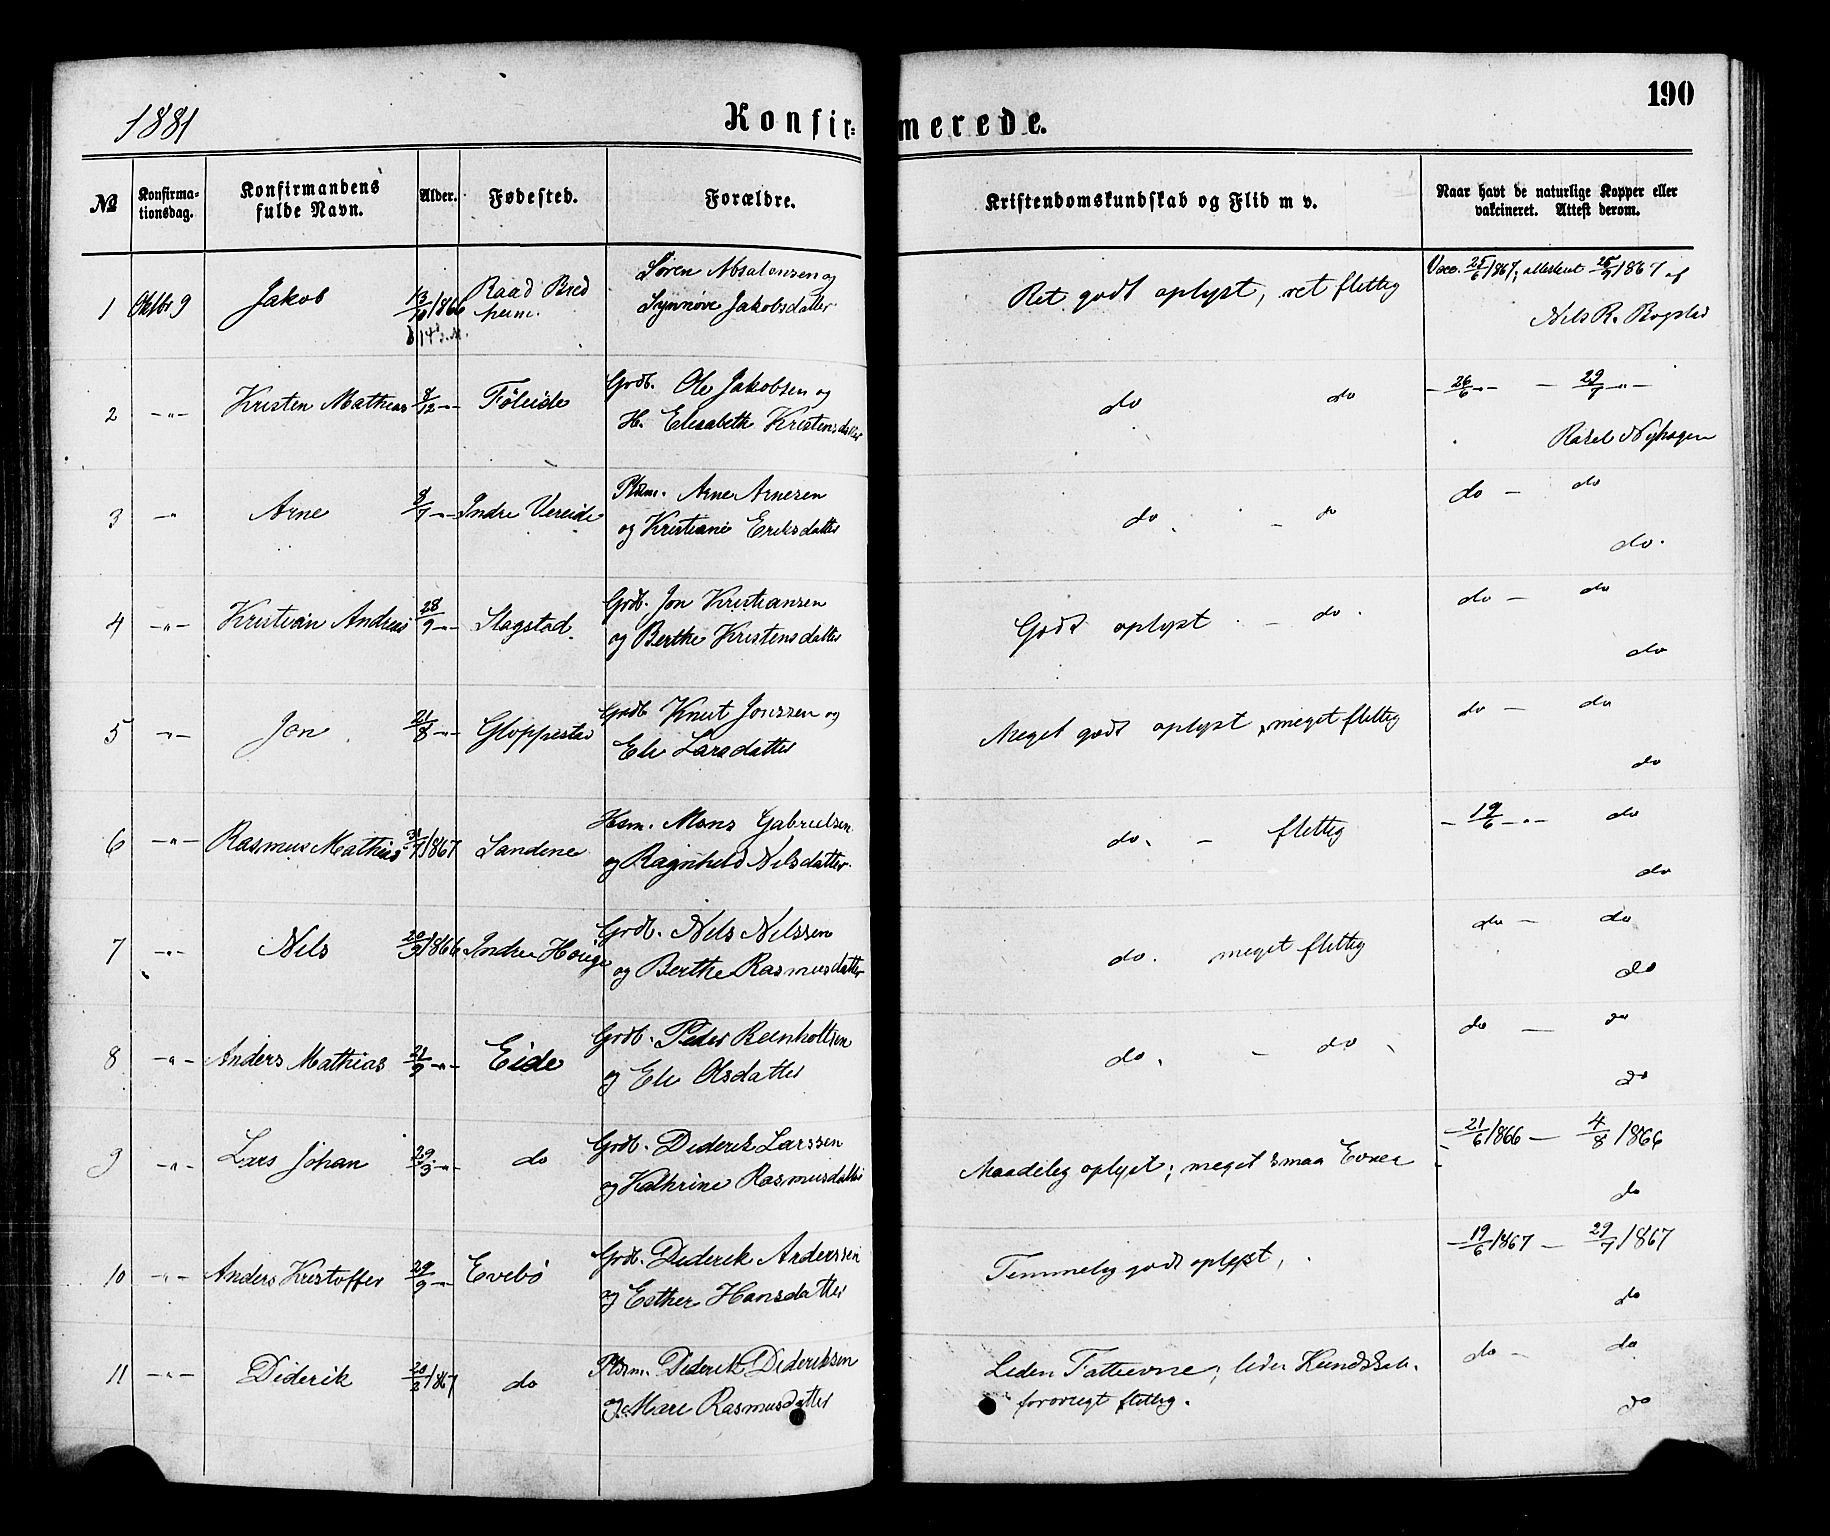 190
1881
Konfir= merede.
№
Konfirma-
tionsdag.
Konfirmandens
fulde Navn.
Alder.
Fødested.
Forældre.
Kristendomskundskab og Flid m v.
Naar havt de naturlige Kopper eller
vakcineret. Attest derom.
1 Oktbr 9 Jakob 13/10 1866 Raad Bred Søren Absalonsen og Ret godt oplyst, ret flittig Vacc. 25/6 1867, attesteret 1867 af
heim. Synnøve Jakobsdatter Nels R. Bogstad
2 -"- Kristen Mathias 7/12 -"- Föleide Grdb. Ole Jakobsen og do do - 26/6 -"- - 29/7 -"-
H. Elisabeth Kristensdatter Rasel Nyhagen
3 -"- Arne 8/7 -"- Indre Vereide Pldsm. Arne Arnesen do. - do do - do
og Kristiane Eriksdatter do.
4 -"- Kristian Andreas 28/9 -"- Slagstad. Grdb. Jon Kristiansen Godt oplyst. - do. do - do
og Berthe Kristensdatter do
5 -"- Jon 21/8 -"- Gloppestad Grdb Knut Jonssen og Meget godt oplyst, meget flittig do - do
Eli Larsdatter do
6 -"- Rasmus Mathias 31/7 1867 Sandene Hsm. Mons Gabrielsen do. - flittig - 19/6 -"- do
og Ragnhild Nilsdatter. do
7 -"- Nils 20/9 1866 Indre Hauge Grdb. Nils Nilssen do. meget flittig do - do
og Berthe Rasmusdatter do
8 -"- Anders Mathias 21/9 -"- Eide Grdb. Peder Reinholtsen do. - do do - do
og Eli Olsdatter do
9 -"- Lars Johan 29/3 -"- do Grdb. Diderik Larssen Maadelig oplyst; meget smaa Evner - 21/6 1866 - 4/8 1866
og Kathrine Rasmusdatter do
10 -"- Anders Kristoffer 29/9 -"- Evebö Grdb. Diderik Anderssen Temmelig godt oplyst, - 19/6 1867 - 29/7 1867
og Esther Hansdatter do
11 -"- Diderik 20/2 1867 do Pldsm. Diderik Dideriksen Liden Fatteevne; liden Kundskab. do - do
og Mari Rasmusdatter forøvrigt flittig. do